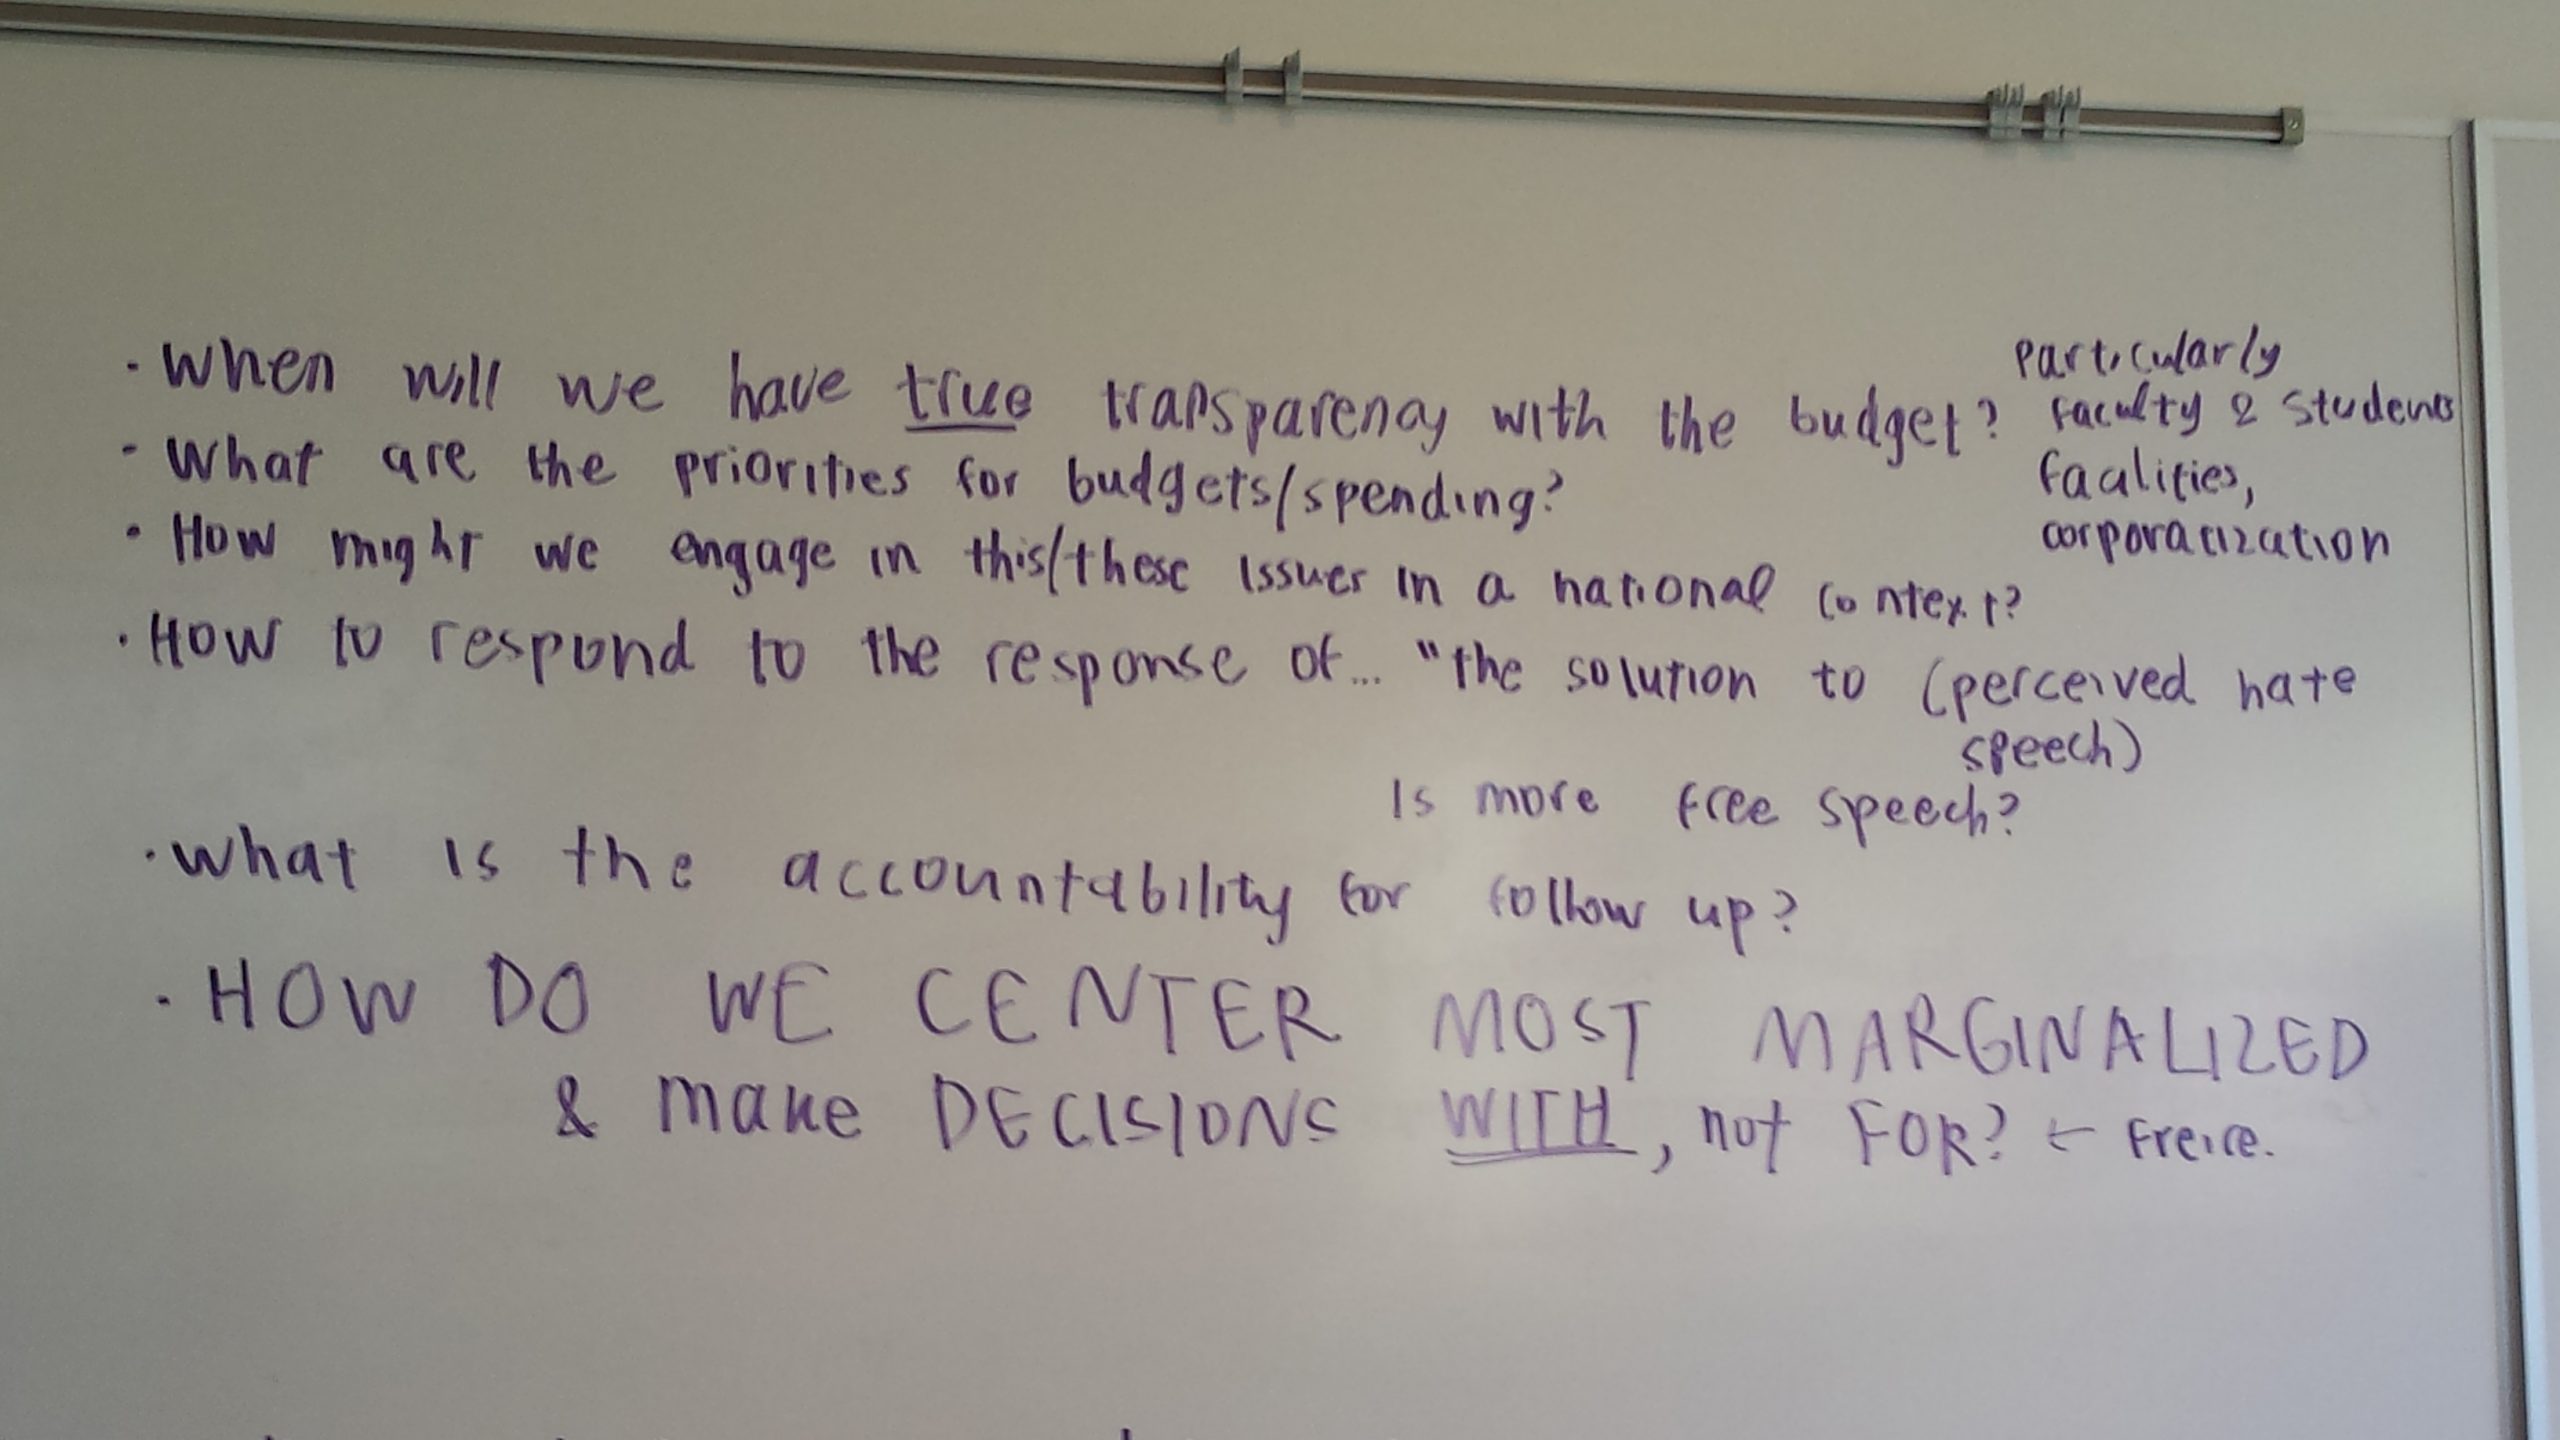 · When will we have true transparency with the budget?
particularly
faculty & students
facilities,
corporatization
- What are the priorities for budgets/spending?
· How might we engage in this/these issues in a national context?
· How to respond to the response of... "the solution to (perceived hate
speech)
is more free speech?
· What is the accountability for follow up?
· HOW DO WE CENTER MOST MARGINALIZED
& make DECISIONS WITH, not FOR? ← Freire.